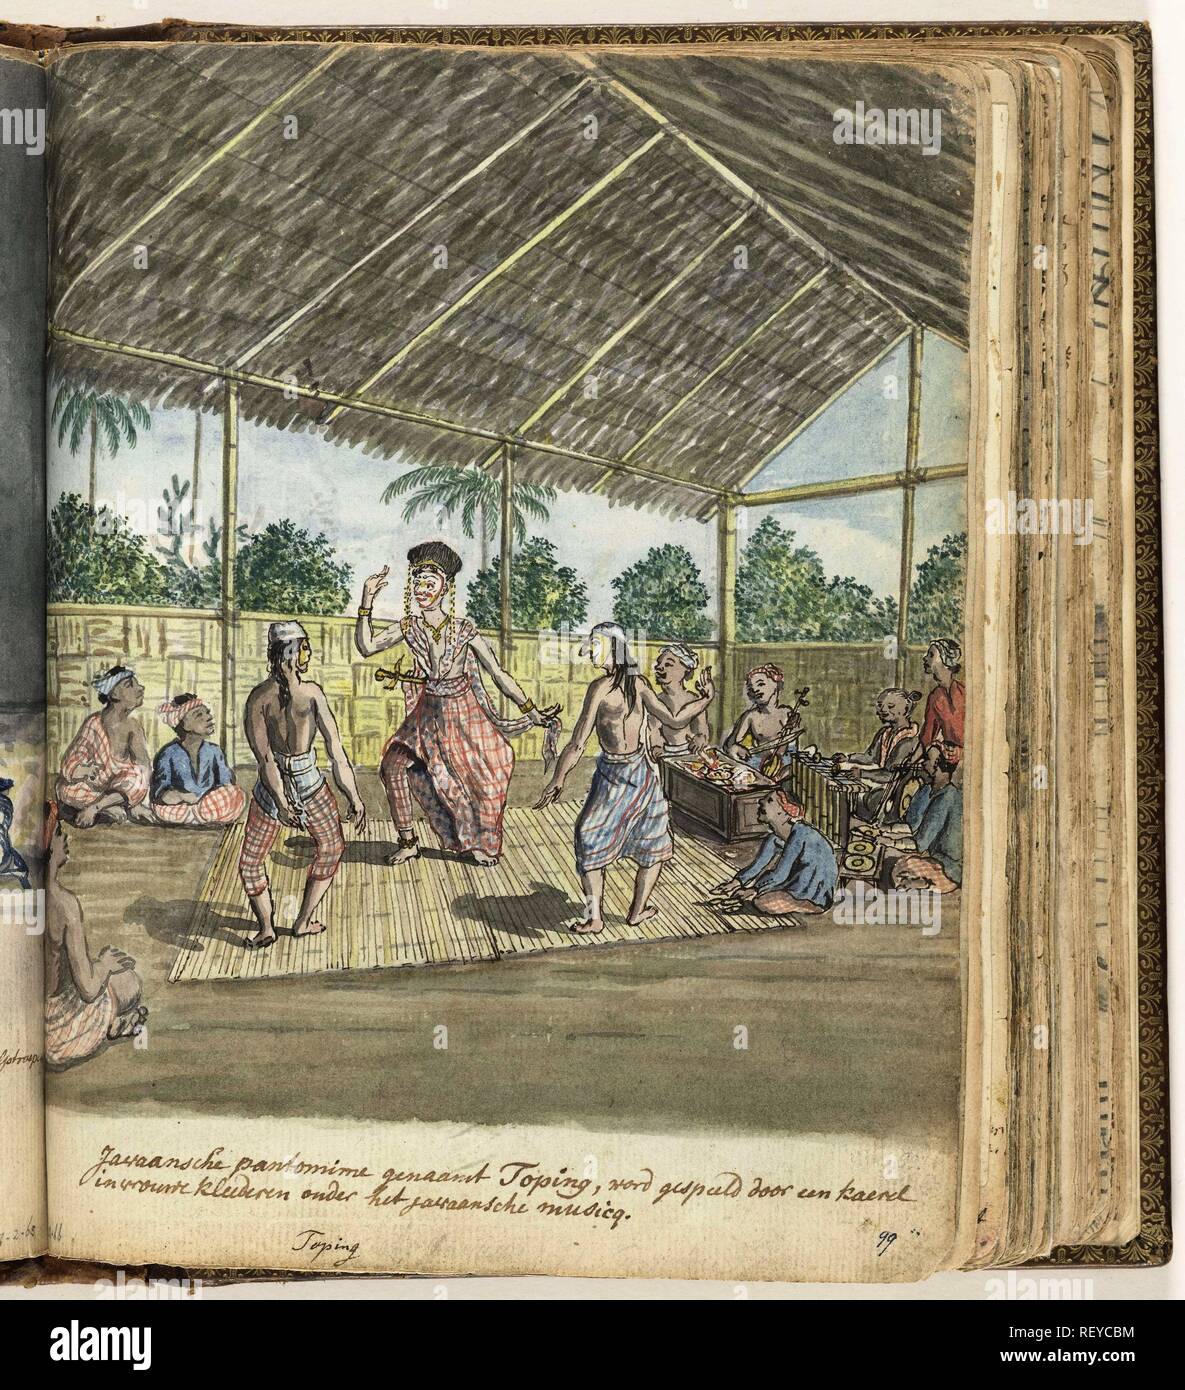 Javaansche pantomime genaamt Toping, word gespeeld door een kaerel
in vrouwe kleederen onder het javaansche musicq.
Toping
99
alamy
Image ID: REYCBM
www.alamy.com